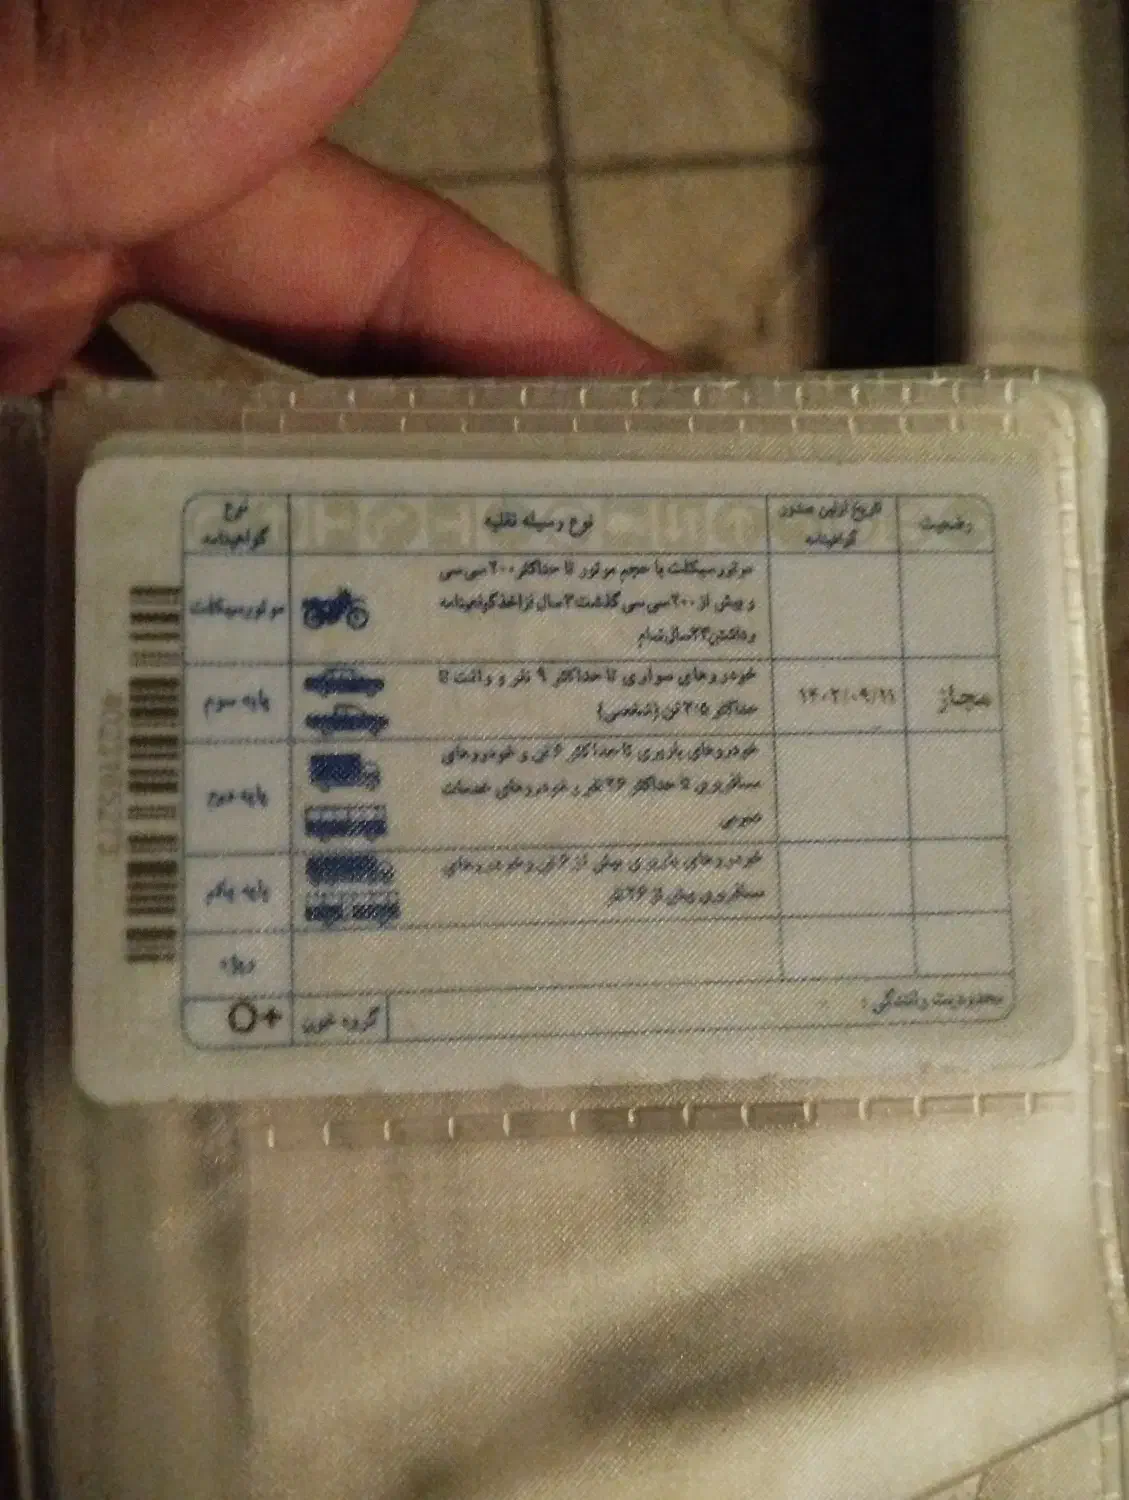 نوع گواهینامه
نوع وسیله نقلیه
تاریخ اولین صدور گواهینامه
وضعیت
موتورسیکلت
موتورسیکلت با حجم موتور تا حداکثر ۲۰۰ سی سی
و بیش از ۲۰۰ سی سی گذشت ۲ سال از اخذ گواهینامه
و داشتن ۲۳ سال تمام
پایه سوم
خودروهای سواری تا حداکثر ۹ نفر و وانت تا
حداکثر ۳/۵ تن (شخصی)
مجاز
پایه دوم
خودروهای باربری تا حداکثر ۶ تن و خودروهای
مسافربری تا حداکثر ۲۶ نفر و خودروهای خدمات
عمومی
پایه یکم
خودروهای باربری بیش از ۶ تن و خودروهای
مسافربری بیش از ۲۶ نفر
ویژه
O+
گروه خون
محدودیت رانندگی :